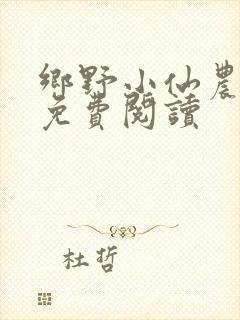 鄉野小仙農
免費閱讀
杜哲